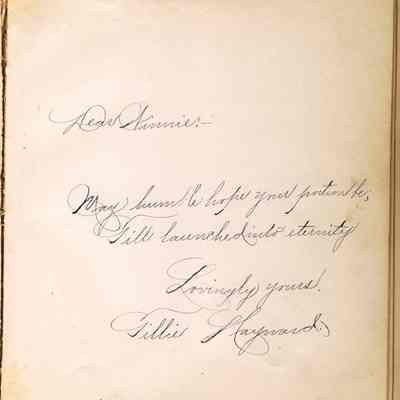 Dear Winnie:—
May humble hope your portion be,
Till launched into eternity
Lovingly yours.
Tillie Hayward.